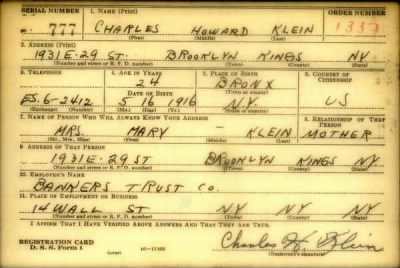 SERIAL NUMBER 1. NAME (Print) ORDER NUMBER
777 CHARLES HOWARD KLEIN 1337
(First) (Middle) (Last)
2. ADDRESS (Print)
1931 E-29 ST. BROOKLYN KINGS NY
(Number and street or R. F. D. number) (Town) (County) (State)
3. TELEPHONE 4. AGE IN YEARS 5. PLACE OF BIRTH 6. COUNTRY OF CITIZENSHIP
24 BRONX
DATE OF BIRTH (Town or county)
ES.6-2412 5 16 1916 N.Y. US
(Exchange) (Number) (Mo.) (Day) (Yr.) (State or country)
7. NAME OF PERSON WHO WILL ALWAYS KNOW YOUR ADDRESS 8. RELATIONSHIP OF THAT PERSON
MRS. MARY KLEIN MOTHER
(Mr., Mrs., Miss) (First) (Middle) (Last)
9. ADDRESS OF THAT PERSON
1931 E-29 ST BROOKLYN KINGS NY
(Number and street or R. F. D. number) (Town) (County) (State)
10. EMPLOYER'S NAME
BANKERS TRUST CO.
11. PLACE OF EMPLOYMENT OR BUSINESS
14 WALL ST NY NY NY
(Number and street or R. F. D. number) (Town) (County) (State)
I AFFIRM THAT I HAVE VERIFIED ABOVE ANSWERS AND THAT THEY ARE TRUE.
REGISTRATION CARD
D. S. S. Form 1 (over) 16-17105 Charles H. Klein
(Registrant's signature)